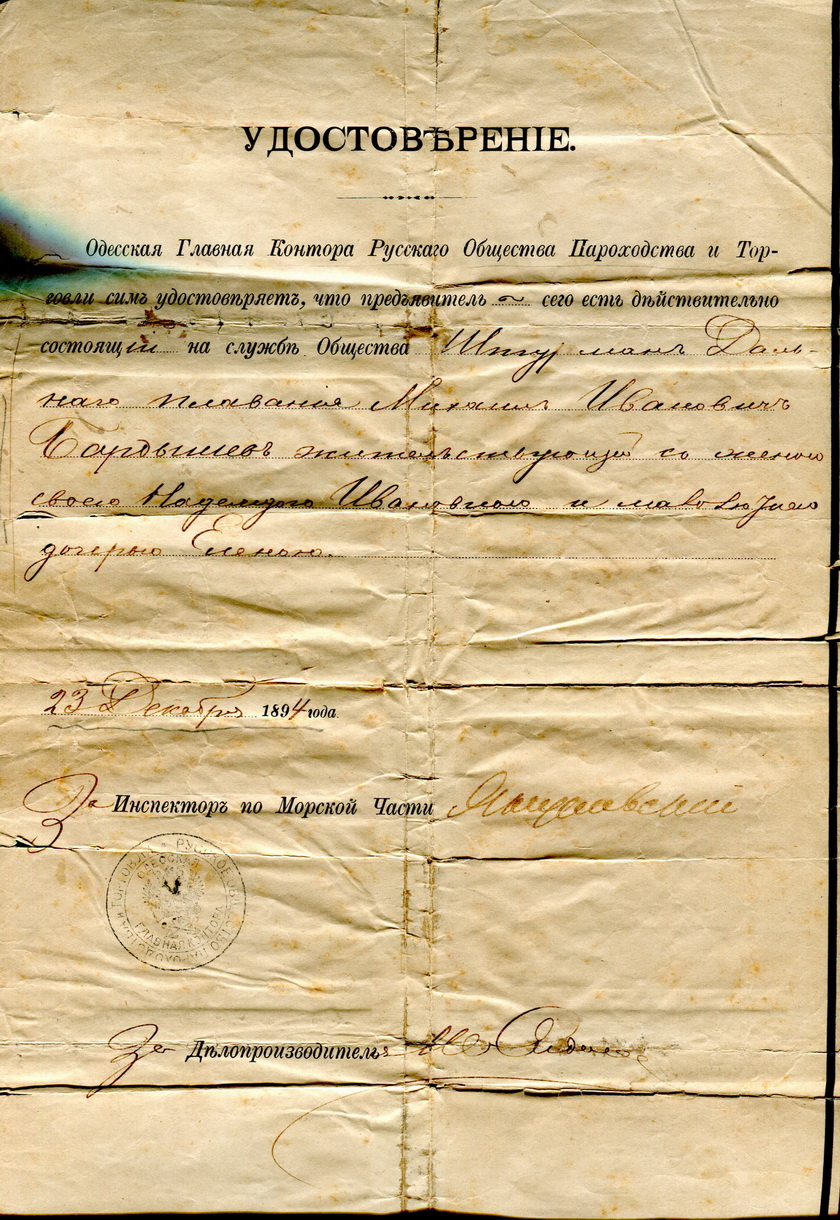 УДОСТОВѢРЕНІЕ.
Одесская Главная Контора Русскаго Общества Пароходства и Тор-
говли симъ удостовѣряетъ, что предъявитель ~ сего есть дѣйствительно
состоящій на службѣ Общества Штурманъ Даль-
наго плаванія Михаилъ Ивановичъ
Бардышевъ жительствующій со женою
своею Надеждою Ивановною и малолѣтнею
дочерью Еленою.
23 Декабря 1894 года.
За Инспекторъ по Морской Части
РУССКОЕ ОБЩЕСТВО ПАРОХОДСТВА И ТОРГОВЛИ
ОДЕССКАЯ
ГЛАВНАЯ КОНТОРА
За Дѣлопроизводитель